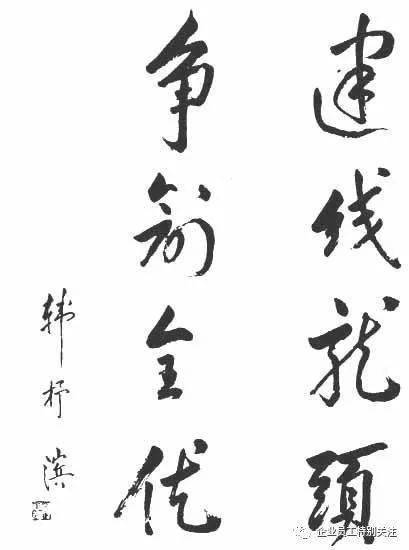 建线龍頭
争创全优
韩杼滨
企业员工特别关注